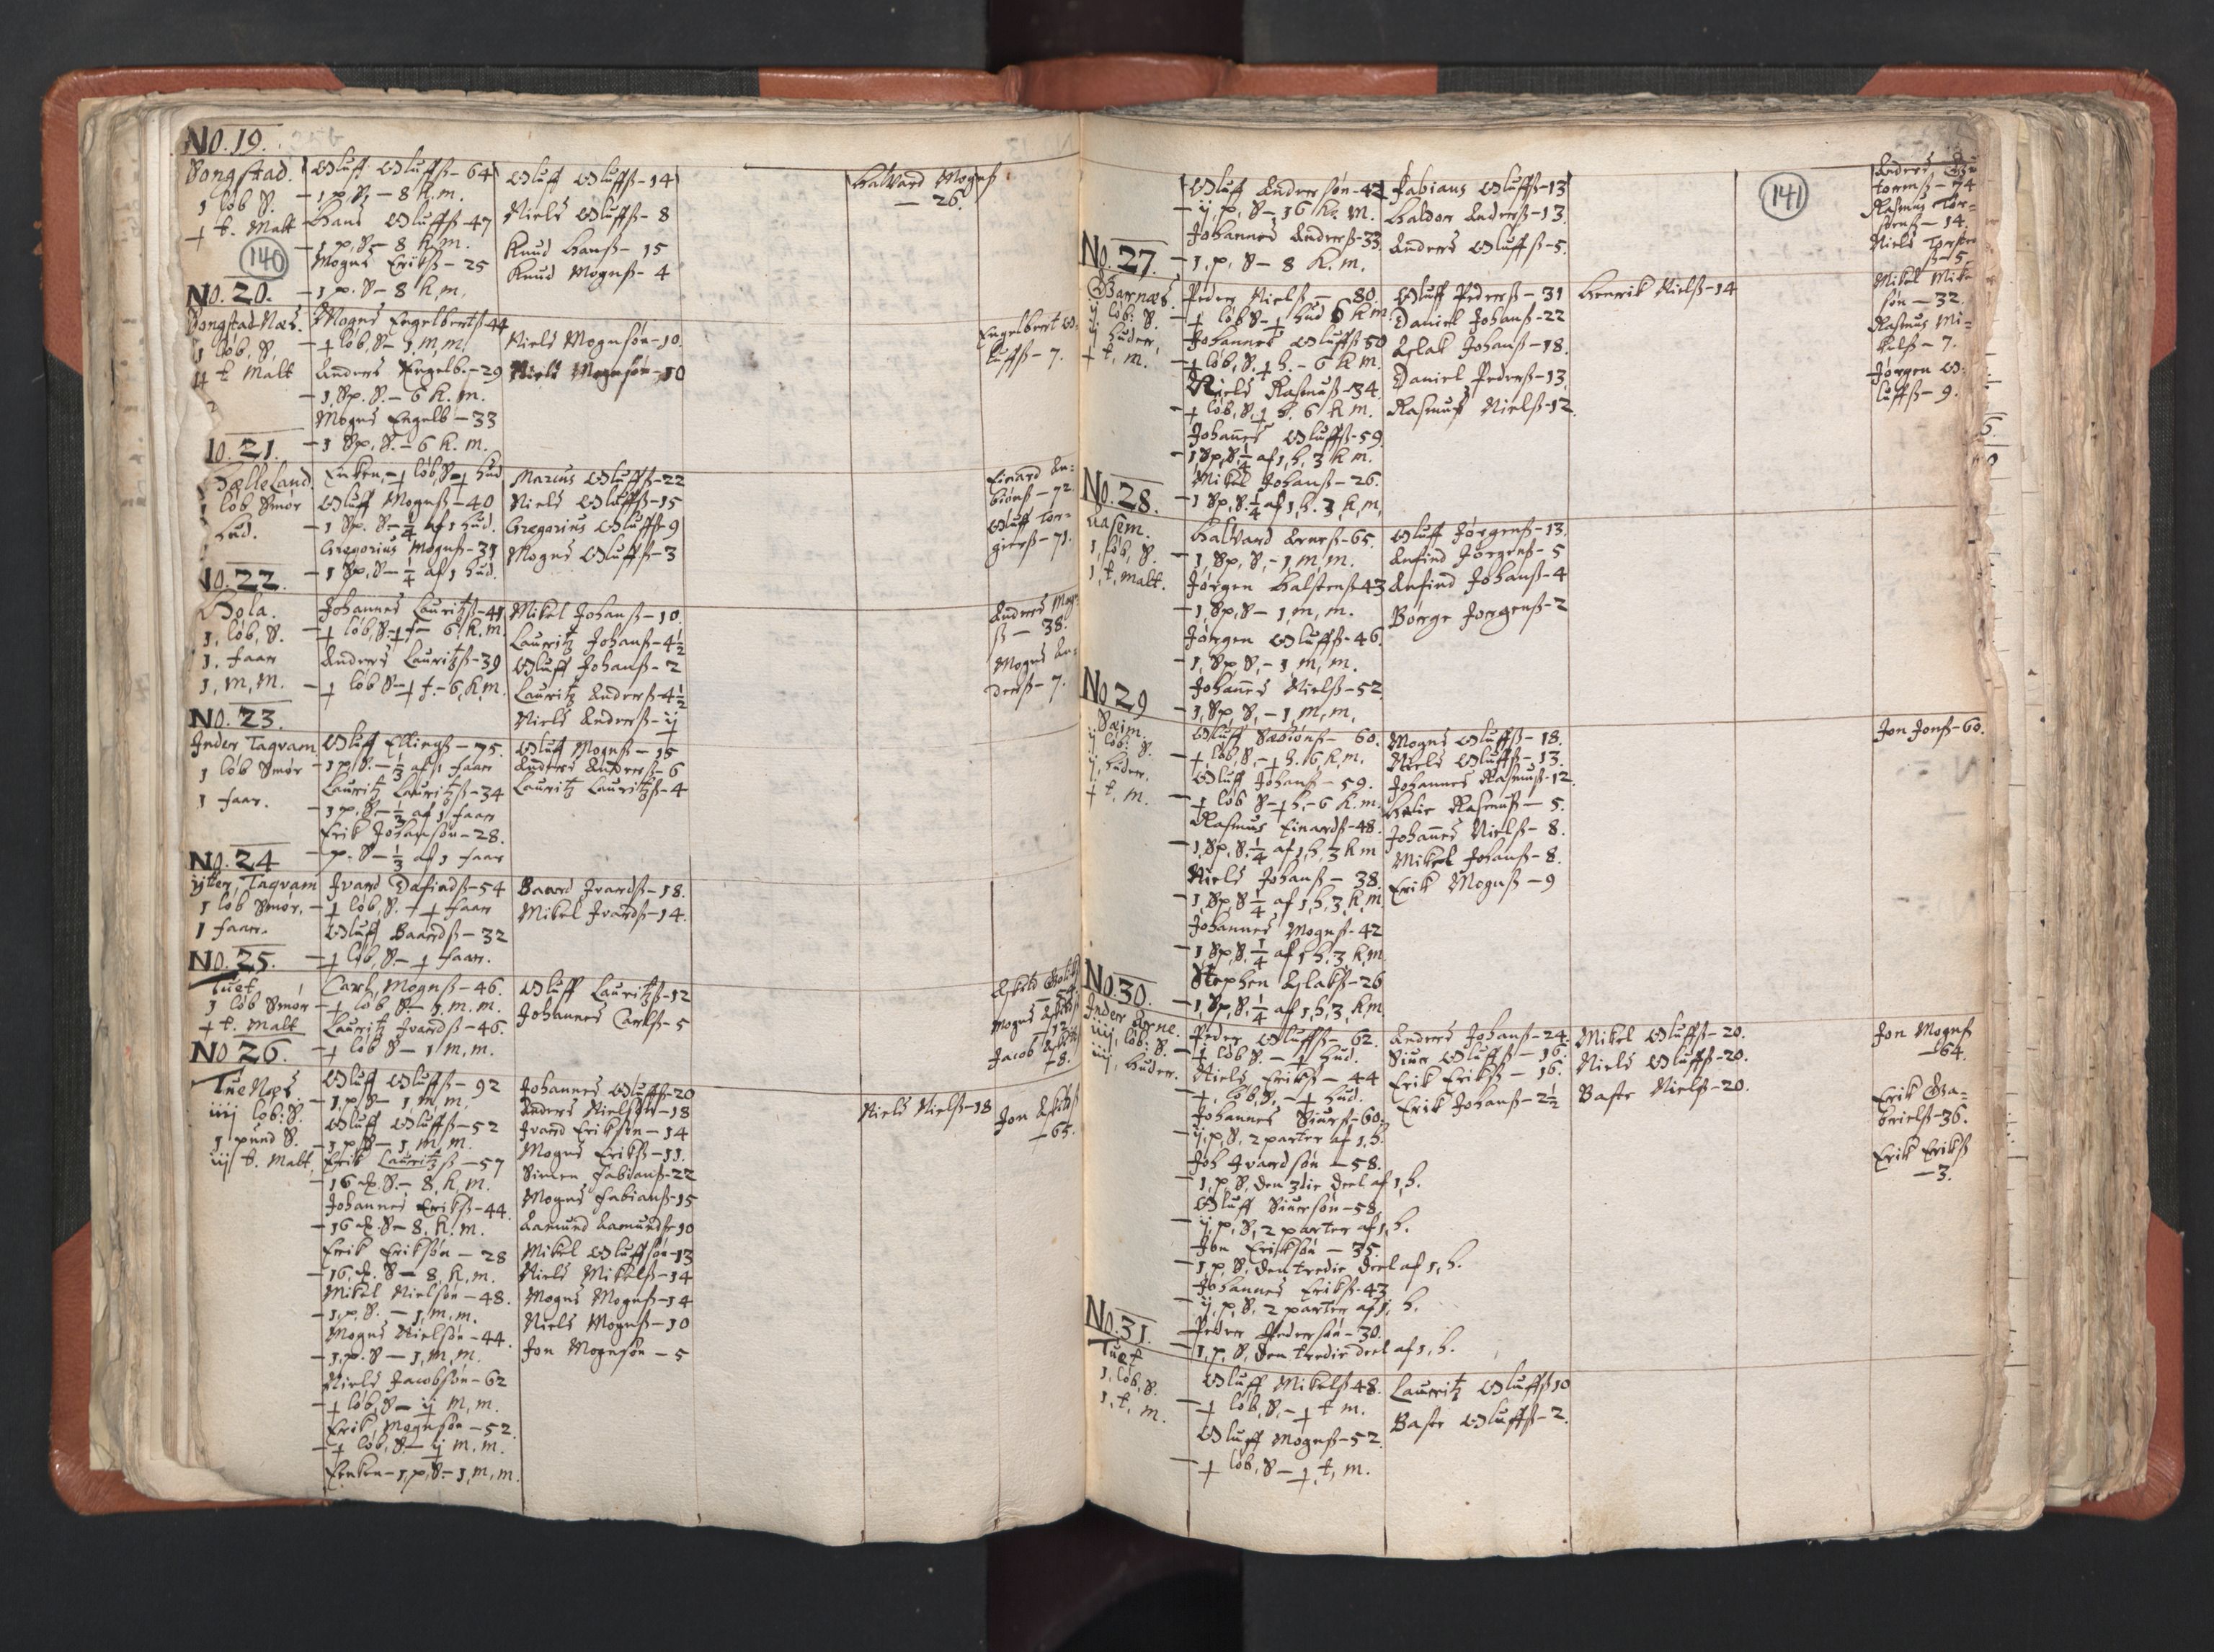 No. 19.
Songstad.
1 løb S.
½ t. Malt
140
Oluff Oluffß - 64
- 1 p. S. - 8 k. m.
Hans Oluffß - 47
- 1 p. S - 8 k. m.
Mogns Erikß - 25
- 1 p. S - 8 k. m.
Oluff Oluffß - 14
Niels Oluffß - 8
Knud Hansß - 15
Knud Mognß - 4
Halvard Mognß
- 26.
No. 20.
Songstad Næs.
1 løb, S,
t Malt
Mogns Engelbertß - 44
- ½ løb, S - 1, m, m,
Anders Engelb. - 29
- 1, Sp. S. - 6 k. m.
Mogns Engelb - 33
- 1 Sp, S. - 6 k. m.
Niels Mognsøn - 10.
Niels Mognsøn - 10
Engelbert O-
luffß - 7.
21.
Helleland.
løb Smør
hud.
Enken, - ½ løb, S - ½ hud
Oluff Mognß - 40
- 1 Sp. S - ¼ af 1 hud.
Gregorius Mognß - 31
- 1 Sp, S - ¼ af 1 hud.
Marcus Oluffß - 22
Niels Oluffß - 15
Gregorius Oluffß - 9
Mogns Oluffß - 3
Einard An-
biørnß - 72.
Oluff Tor-
gierß - 71.
22.
Hola.
1, løb, S.
1, faar
1, m, m.
Johannes Lauritzß - 41
- ½ løb, S - ½ f - 6 k. m
Anders Lauritzß - 39
- ½ løb S - ½ f. - 6, k, m.
Mikel Johanß - 10.
Lauritz Johanß - 4½
Oluff Johanß - 2
Lauritz Anderß - 4½
Niels Anderß - ij
Anders Mogn-
ß - 38.
Mogns An-
derß - 7.
No. 23.
Inder Tagvam
1 løb Smør
1 faar.
Oluff Ellingß - 75.
- 1 p, S. - ⅓ af 1 faar
Lauritz Lauritzß - 34
- 1 p, S. - ⅓ af 1 faar
Erik Johansøn - 28.
- p. S - ⅓ af 1 faar
Oluff Mognß - 15
Anders Anderß - 6
Lauritz Lauritzß - 4
No. 24
ytter, Tagvam
1 løb Smør,
1 faar.
Ivard Dafindß - 54
- ½ løb, S. - ½ faar
Oluff Baardß - 32
- ½ løb, S. - ½ faar.
Baard Ivardß - 18.
Mikel Ivardß - 14.
No. 25.
Tuet,
1 løb Smør
½ t. Malt
Carl, Mognß - 46.
- ½ løb S. - 1, m. m.
Lauritz Ivardß - 46.
- ½ løb S - 1 m, m.
Oluff Lauritzß - 12
Johannes Carlß - 5
No 26.
Tue Næs
iiij løb: S.
1 pund S.
iij t. Malt
Oluff Oluffß - 92
- 1, p, S - 1 m, m,
Oluff Oluffß - 52
- 1 p, S - 1 m, m.
Erik Lauritzß - 57
- 16 S. - 8, k, m.
Johannes Erikß - 44.
- 16 S - 8, k. m.
Erik Eriksøn - 28
- 16, S - 8, k, m.
Mikel Nielsøn - 48.
- 1, p, S. - 1, m, m.
Mogns Nielsøn - 44.
- 1, p. S - 1, m, m.
Niels Jacobsøn - 62
- ½ løb, S - ij m, m.
Erik Mognsøn - 52.
- ½ løb, S. - ij m, m.
Enken - 1, p, S - 1, m, m.
Johannes Oluffß - 20
Anders Nielsøn - 18
Ivard Eriksøn - 14
Mogns Erikß - 11.
Simen Fabianß - 22
Mogns Fabianß - 15
Aamund Aamundß - 10
Mikel Oluffsøn - 13
Niels Mikelß - 14
Mogns Mognß - 14
Niels Mognß - 10
Jon Mognsøn - 5
Niels Nielß - 18
Jon
- 65.
141
Oluff Andersøn - 42
- ij, p, S - 16 k. m.
Johannes Anderß - 33
- 1, p, S - 8 k. m.
Fabians Oluffß - 13
Haldor Anderß - 13.
Anders Oluffß - 5.
Rasmus Tor-
Niels
No. 27.
Garnæs.
ij løb: S.
ij huder,
½ t, m.
Peder Nielß - 80.
- ½ løb S - ½ hud 6 k m
Johannes Oluffß 50
- ½ løb, S. ½ h. - 6 k m.
Niels Rasmusß - 34.
- ½ løb, S, ½ h. 6 k m.
Johañes Oluffß - 59
- 1 Sp, S ¼ af 1, h, 3 k m.
Mikel Johanß - 26.
- 1 Sp, S. ¼ af 1, h. 3, k, m,
Oluff Pederß - 31
Daniel Johanß - 22
Aslak Johanß - 18.
Daniel Pederß - 13.
Rasmus Nielß - 12.
Henrik Nielß - 14
Mikel Mik-
søn - 32.
Rasmus Mi-
kelß - 7.
Jørgen O-
luffß - 9.
No. 28.
Aasem.
1, løb, S.
1, t, malt.
Halvard Arneß - 65.
- 1, Sp, S, - 1, m, m.
Jørgen Halstenß 43
- 1, Sp, S - 1, m, m.
Jørgen Oluffß - 46.
- 1, Sp S, - 1 m, m.
Johañes Nielß - 52
- 1, Sp, S, - 1, m, m,
Oluff Jørgenß - 13.
Anfind Jørgenß - 5
Anfind Johanß - 4
Børge Jørgenß - 2
No 29
Seim.
ij løb: S.
ij, huder.
½ t, m.
Oluff Sæbiønß - 60.
- ½ løb, S, - ½ h. 6, k, m.
Oluff Johanß - 59.
- ½ løb S - ½ h, - 6 k. m.
Rasmus Einardß - 48.
- 1, Sp, S. ¼ af 1, h, 3 k m
Niels Johanß - 38.
- 1, Sp, S ¼ af 1, h, 3, k, m
Johannes Mognß - 42
- 1 Sp, S. ¼ af 1 h. 3 k, m,
Stephen Aslakß - 26
- 1, Sp, S. ¼ af 1, h, 3, k m
Mogns Oluffß - 18.
Niels Oluffß - 13.
Johannes Rasmusß - 12.
Helie Rasmusß - 5.
Johañes Nielß - 8.
Mikel Johanß - 8.
Erik Mognß - 9
Jon Jonß - 60.
No. 30.
Inder Arne.
iiij, løb: S.
iiij, huder.
Peder Oluffß - 62.
- ½ løb S. - ½ hud.
Niels Erikß - 44
- ½, løb, S, - ½ hud.
Johannes Siurß - 60.
- ij, p, S, 2 parter af 1, h.
Joh Ivardsøn - 58.
- 1, p, S, den 3die deel af 1, h.
Oluff Siursøn - 58,
- ij, p, S, 2 parter af 1, h.
Jon Eriksøn - 35.
- 1, p, S, den tredie deel af 1, h.
Johannes Erikß - 43
- ij, p, S. 2 parter af 1, h.
Peder Pedersøn - 30.
- 1, p, S, den tredie deel af 1, h.
Anders Johanß - 24.
Siur Oluffß - 16.
Erik Erikß - 16.
Erik Johanß - 2½
Mikel Oluffß - 20.
Niels Oluffß - 20.
Baste Nielß - 20.
Jon Mognß
- 64.
Erik Ga-
brielß - 36.
Erik Erikß
- 3.
No. 31.
Tuet
1, løb, S.
1, t, m.
Oluff Mikelß 48.
- ½ løb, S, - ½ t m.
Oluff Mognß - 52.
- ½ løb, S - ½, t, m.
Lauritz Oluffß 10
Baste Oluffß - 2.